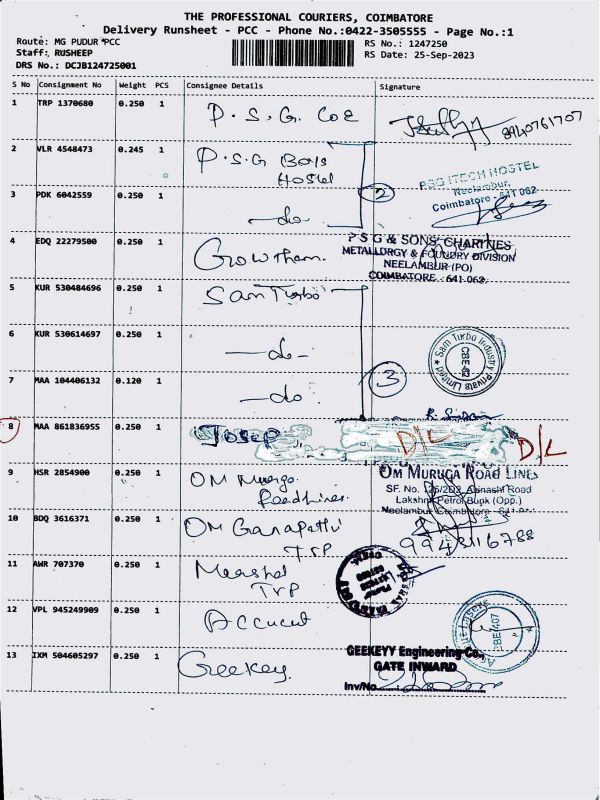 THE PROFESSIONAL COURIERS, COIMBATORE
Delivery Runsheet - PCC - Phone No.:0422-3505555 - Page No.:1
Route: MG PUDUR PCC
RS No.: 1247250
Staff: RUSHEEP
RS Date: 25-Sep-2023
DRS No.: DCJB124725001
S No Consignment No Weight PCS Consignee Details Signature
1 TRP 1370680 0.250 1 P.S.G. COE 8940761707
2 VLR 4548473 0.245 1 P.S.G Boys
Hostel
PSG ITECH HOSTEL
Neelambur,
Coimbatore - 641 062
2
3 PDK 6042559 0.250 1 —do—
4 EDQ 22279500 0.250 1 Growtham.
P S G & SONS' CHARITIES
METALLURGY & FOUNDRY DIVISION
NEELAMBUR (PO)
COIMBATORE - 641 062
5 KUR 530484696 0.250 1 Sam Turbo
6 KUR 530614697 0.250 1 —do—
Sam Turbo Industry Private Limited
CBE-62
7 MAA 104406132 0.120 1 —do—
3
8 MAA 861836955 0.250 1 D/L D/L
9 HSR 2854900 0.250 1 OM Muruga
Roadlines.
OM MURUGA ROAD LINES
SF. No. Avinashi Road
Lakshmi Petrol Bunk (Opp.)
Neelambur, Coimbatore - 641
10 BDQ 3616371 0.250 1 OM Ganapathi
TSP
9943116788
11 AWR 707370 0.250 1 TSP
12 VPL 945249909 0.250 1 Accucut
13 IXM 504605297 0.250 1 Geekey.
GEEKEYY Engineering Co.,
GATE INWARD
Inv/No.